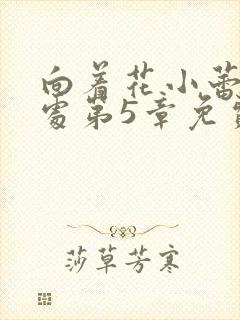 向着花小蕾
处第5章免
莎草芳寒